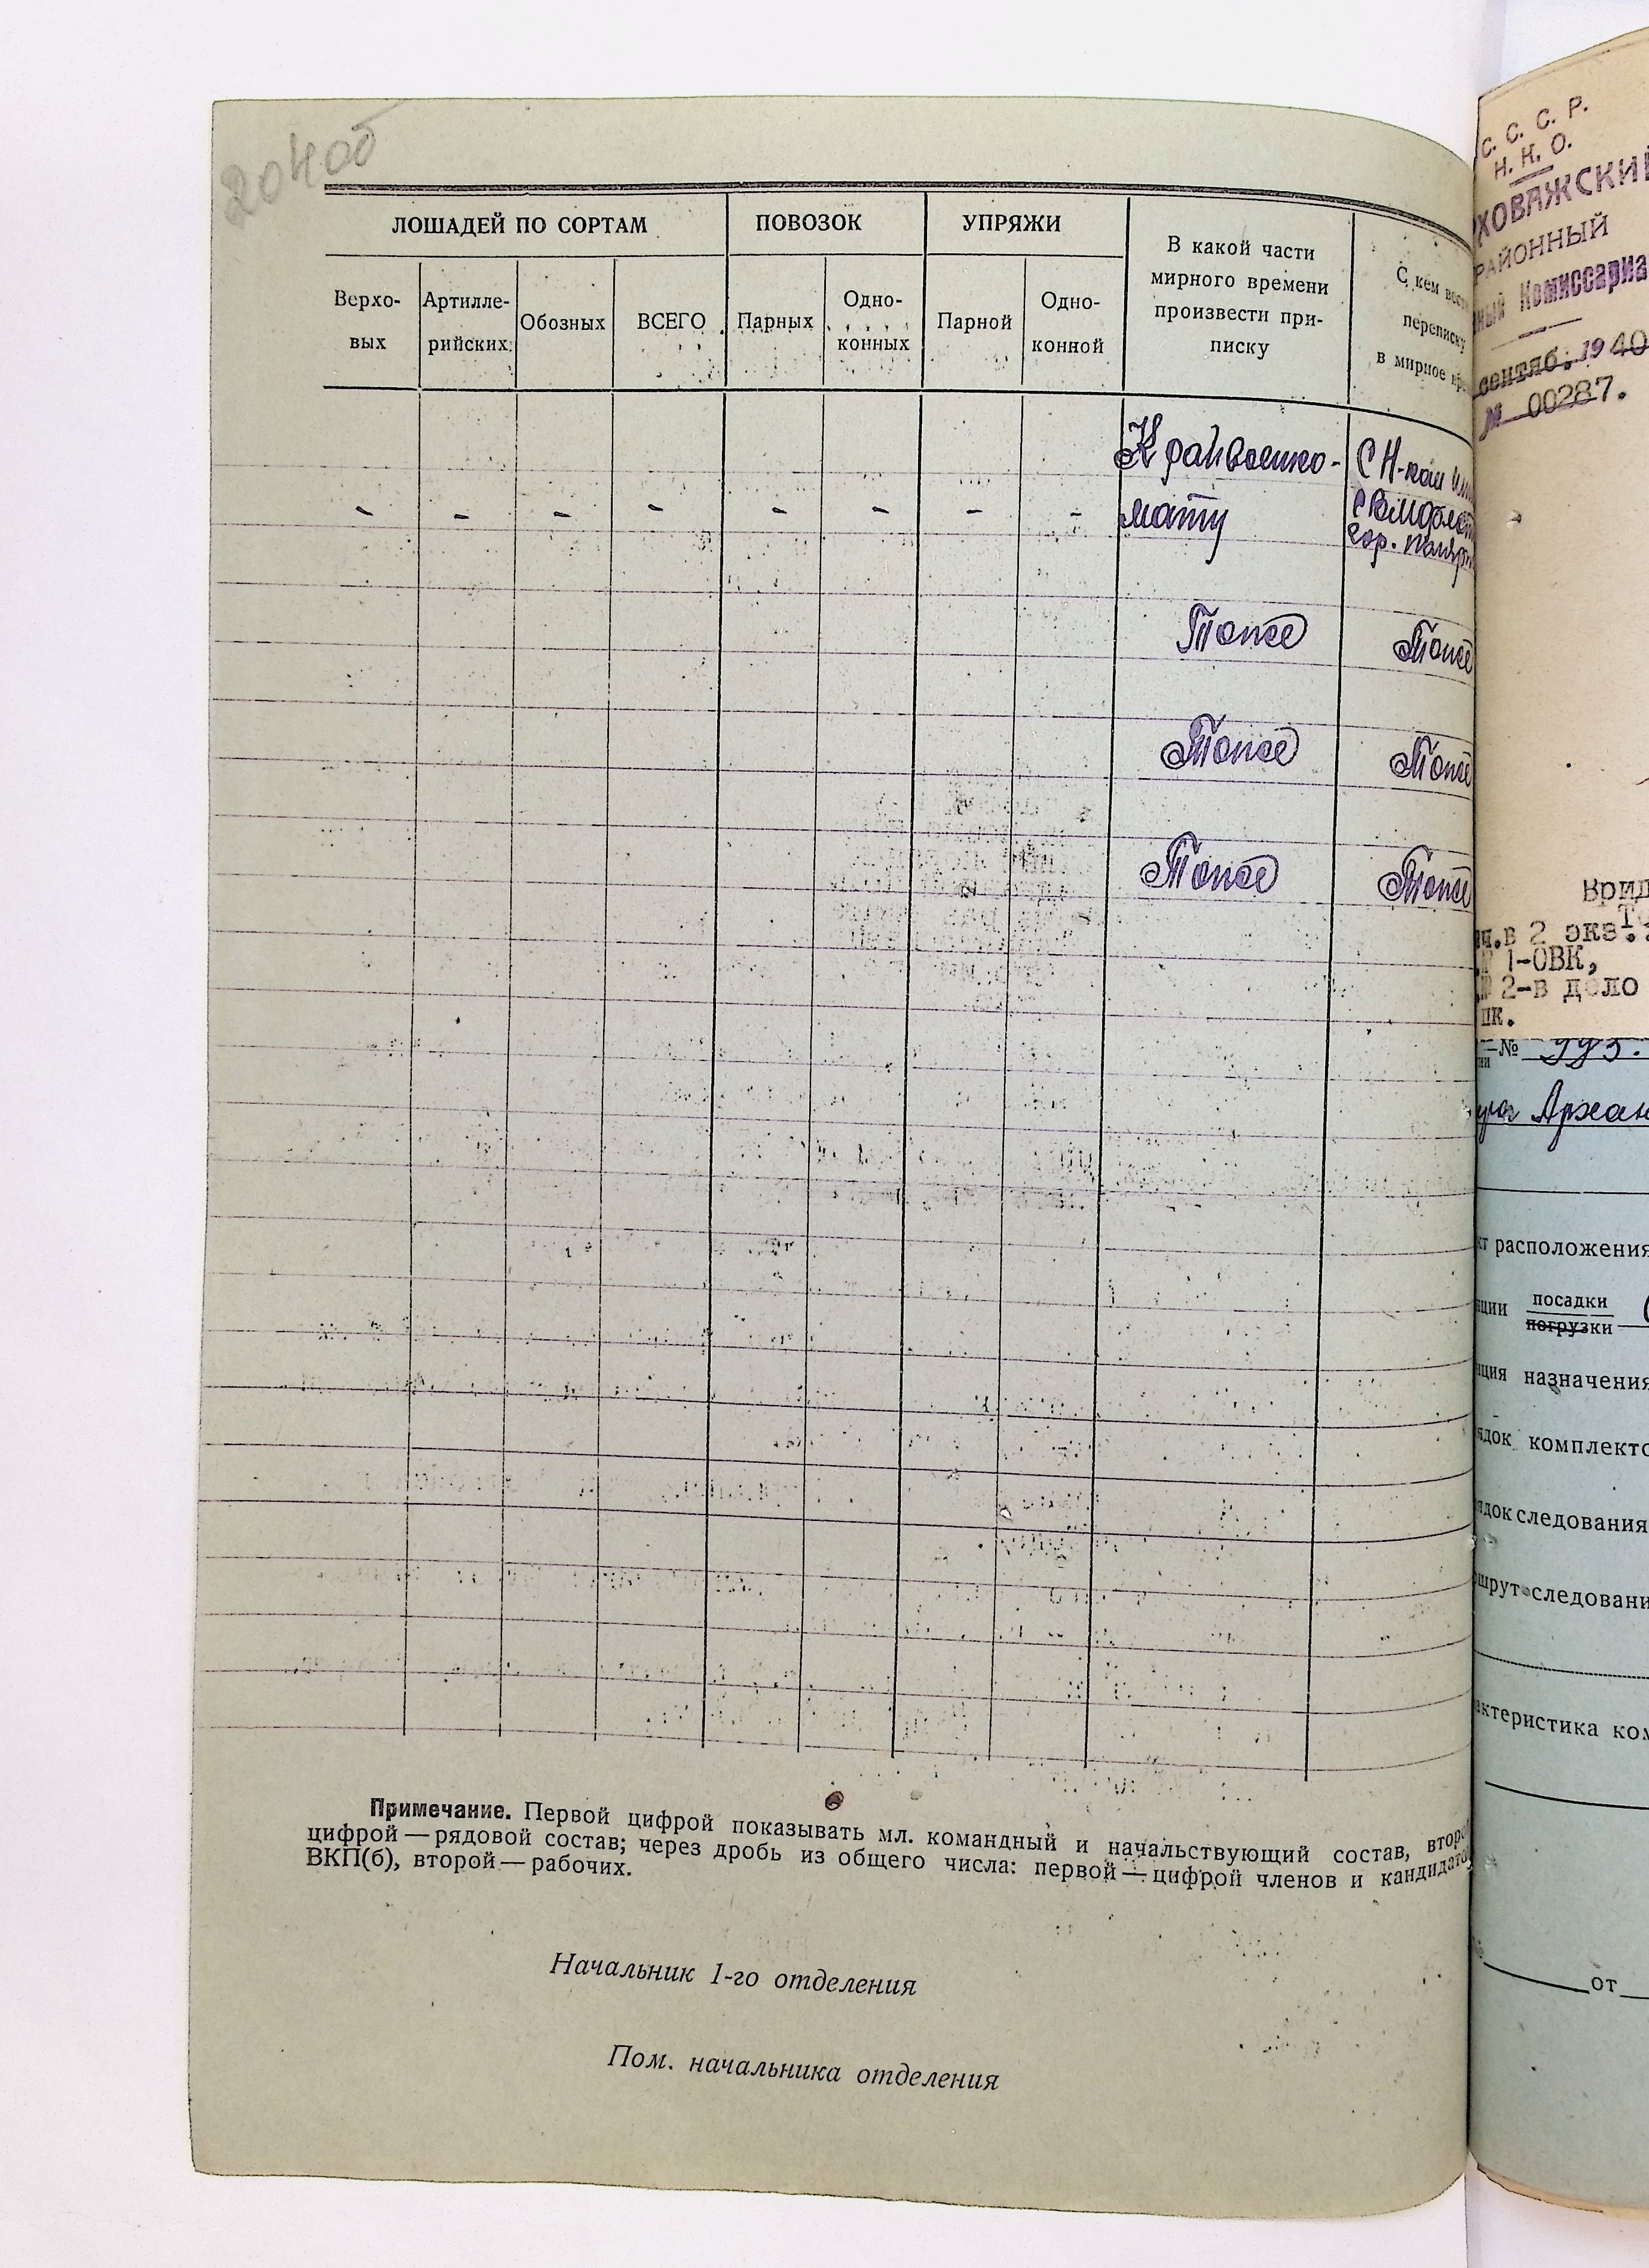 204об
ЛОШАДЕЙ ПО СОРТАМ
ПОВОЗОК
УПРЯЖИ
В какой части
мирного времени
произвести при-
писку
С кем
переписку
в мирное
Верхо-
вых
Артилле-
рийских
Обозных
ВСЕГО
Парных
Одно-
конных
Парной
Одно-
конной
К райвоенко-
мату
- - - - - - - -
С Н-ком
гор.
Тоже
Тоже
Тоже
Тоже
Тоже
Тоже
Примечание. Первой цифрой показывать мл. командный и начальствующий состав, второй
цифрой — рядовой состав; через дробь из общего числа: первой — цифрой членов и кандидатов
ВКП(б), второй — рабочих.
Начальник 1-го отделения
Пом. начальника отделения
С. С. С. Р.
Н. К. О.
ХОВАЖСКИЙ
РАЙОННЫЙ
ный Комиссариа
сентяб. 1940
№ 00287.
Врид
в 2 экз.
1-ОВК,
2-в дело
пк.
№ 993.
Архан
расположения
посадки
погрузки
назначения
комплекто
следования
следовани
ком
от